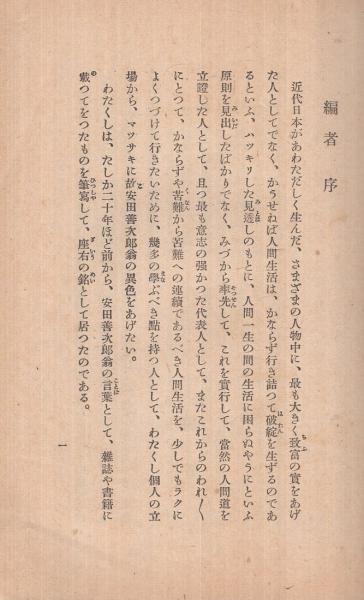 編者序
近代日本があわただしく生んだ、さまざまの人物中に、最も大きく致富の實をあげ
た人としてでなく、かうせねば人間生活は、かならず行き詰つて破綻を生ずるのであ
るといふ、ハツキリした見透しのもとに、人間一生の間の生活に困らぬやうにといふ
原則を見出したばかりでなく、みづから率先して、これを實行して、當然の人間道を
立證した人として、且つ最も意志の強かつた代表人として、またこれからのわれ〳〵
にとつて、かならずや苦難から苦難への連續であるべき人間生活を、少しでもラクに
よくつづけて行きたいために、幾多の學ぶべき點を持つ人として、わたくし個人の立
場から、マツサキに故安田善次郎翁の異色をあげたい。
わたくしは、たしか二十年ほど前から、安田善次郎翁の言葉として、雜誌や書籍に
載つてをつたものを筆寫して、座右の銘として居つたのである。
一